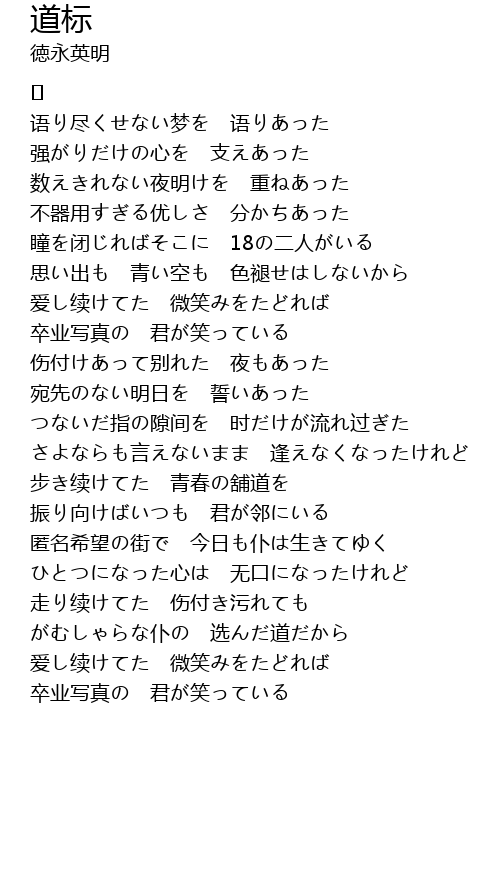 道标
徳永英明
[]
语り尽くせない梦を　语りあった
强がりだけの心を　支えあった
数えきれない夜明けを　重ねあった
不器用すぎる优しさ　分かちあった
瞳を闭じればそこに　18の二人がいる
思い出も　青い空も　色褪せはしないから
爱し续けてた　微笑みをたどれば
卒业写真の　君が笑っている
伤付けあって别れた　夜もあった
宛先のない明日を　誓いあった
つないだ指の隙间を　时だけが流れ过ぎた
さよならも言えないまま　逢えなくなったけれど
步き续けてた　青春の舗道を
振り向けばいつも　君が邻にいる
匿名希望の街で　今日も仆は生きてゆく
ひとつになった心は　无口になったけれど
走り续けてた　伤付き污れても
がむしゃらな仆の　选んだ道だから
爱し续けてた　微笑みをたどれば
卒业写真の　君が笑っている